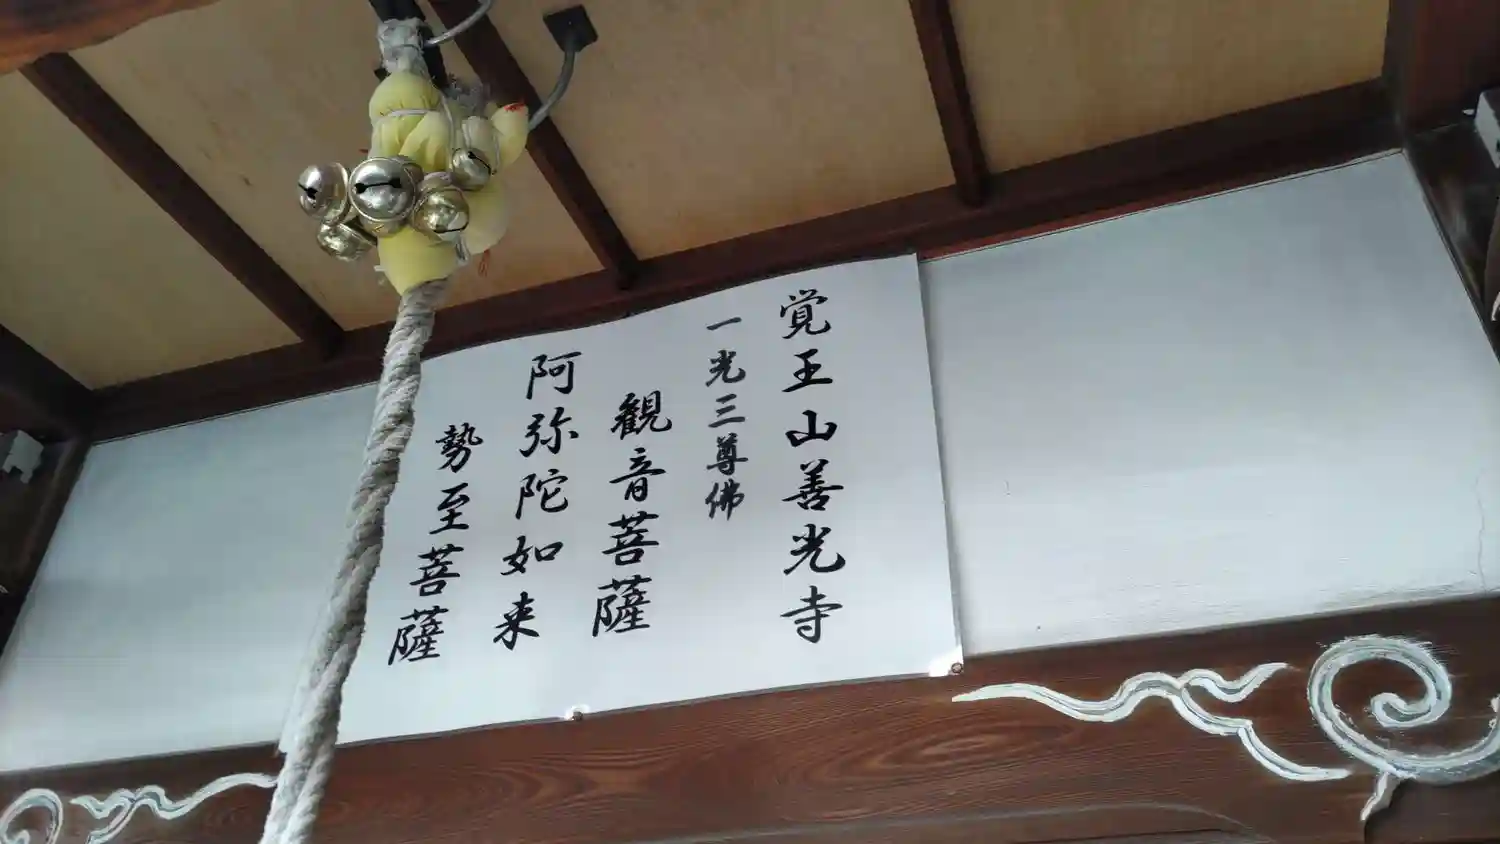 覚王山善光寺
一光三尊佛
観音菩薩
阿弥陀如来
勢至菩薩